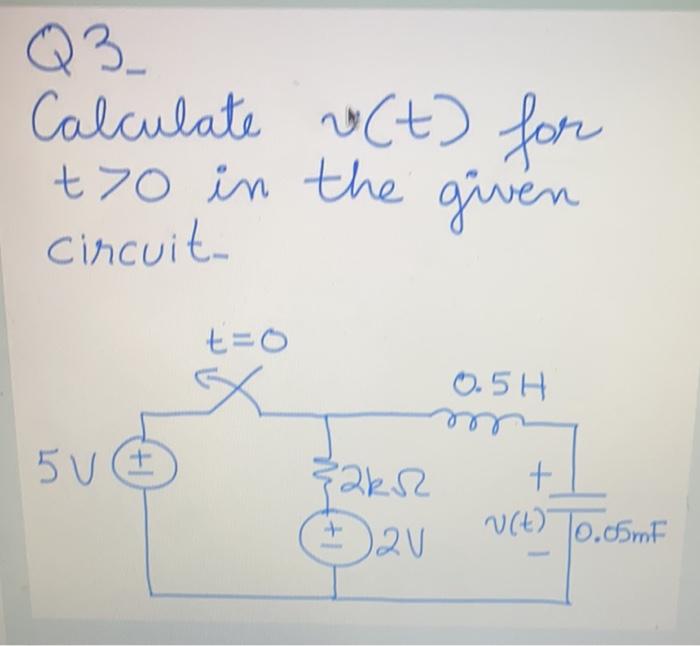 Q3_
Calculate v(t) for
t>0 in the given
circuit-
t=0
0.5H
5V
+
-
2kΩ
+
-
2V
+
v(t)
-
0.05mF